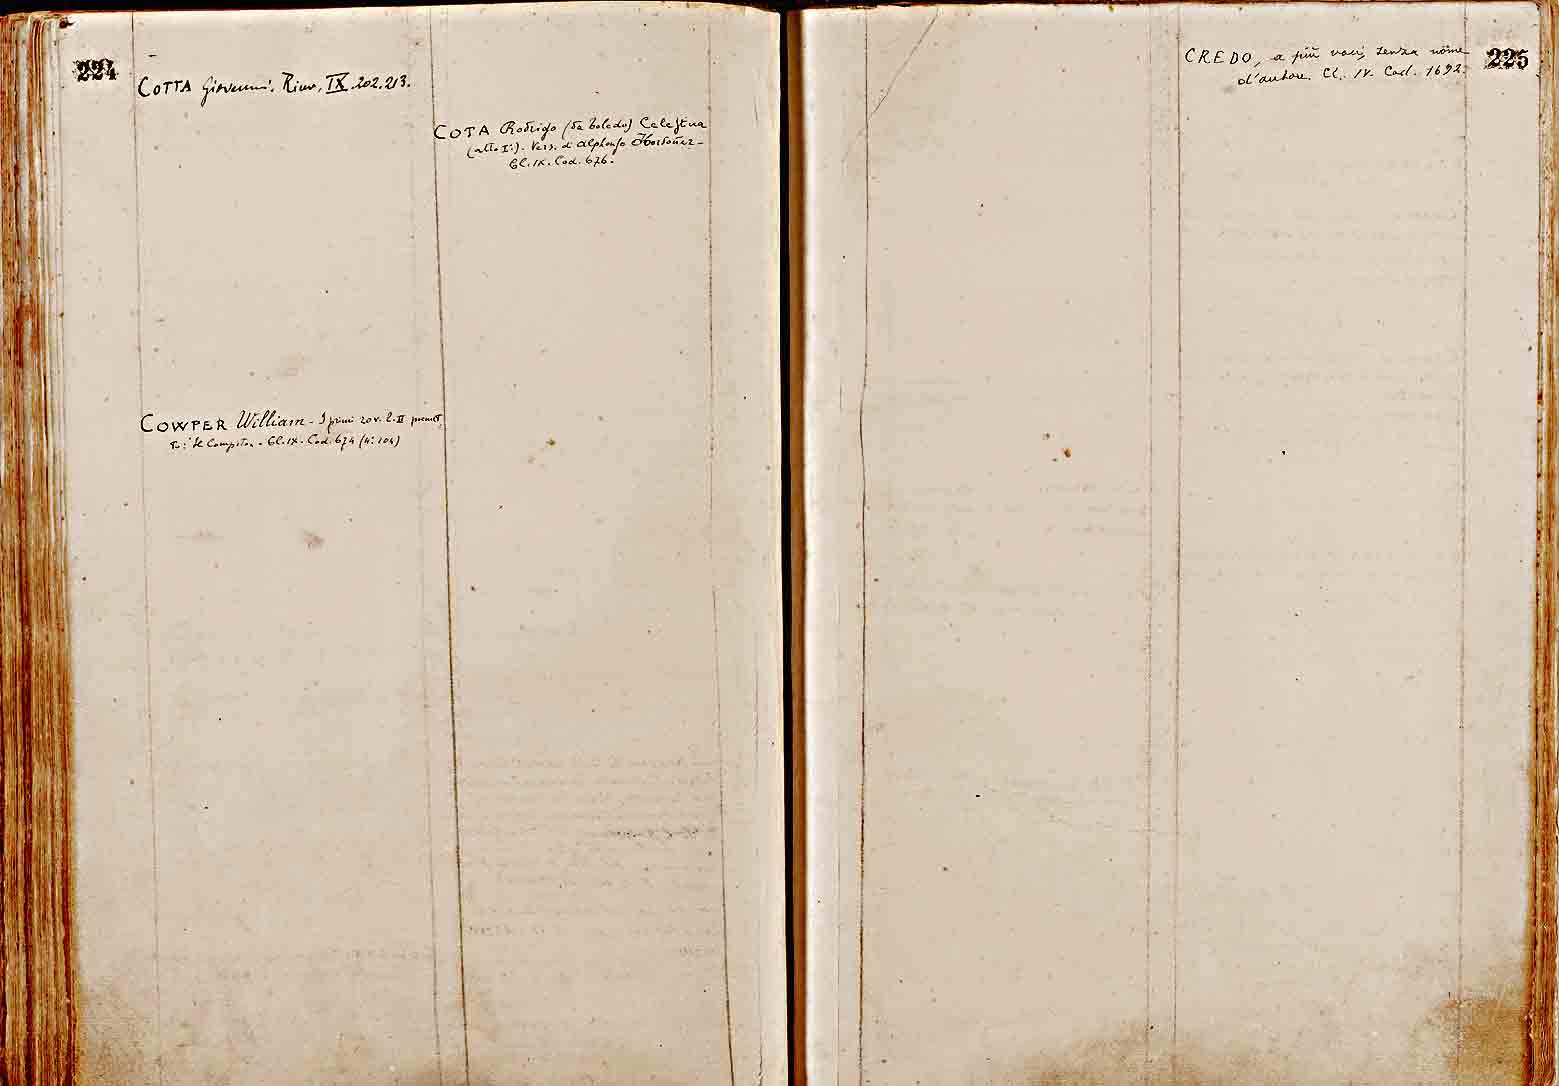 224
COTTA Giovanni. Rime, IX. 202. 213.
COWPER William - I primi 20 v. l. II
- Cl. IX. Cod. 674 (n: 104)
COTA Rodrigo (da Toledo) Celestina
(atto I:). Vers. d'Alphonso Hordoñez -
Cl. IX. Cod. 676.
225
CREDO, a più voci, senza nome
d'autore. Cl. IV. Cod. 1692.